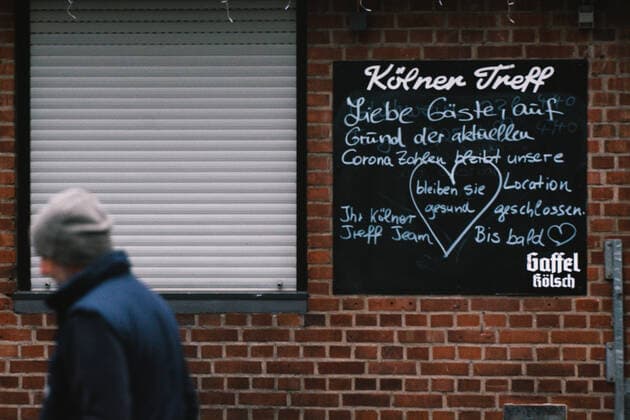 Kölner Treff
Liebe Gäste, auf
Grund der aktuellen
Corona Zahlen bleibt unsere
Location
geschlossen.
bleiben sie
gesund
Ihr Kölner
Treff Team
Bis bald
Gaffel
Kölsch